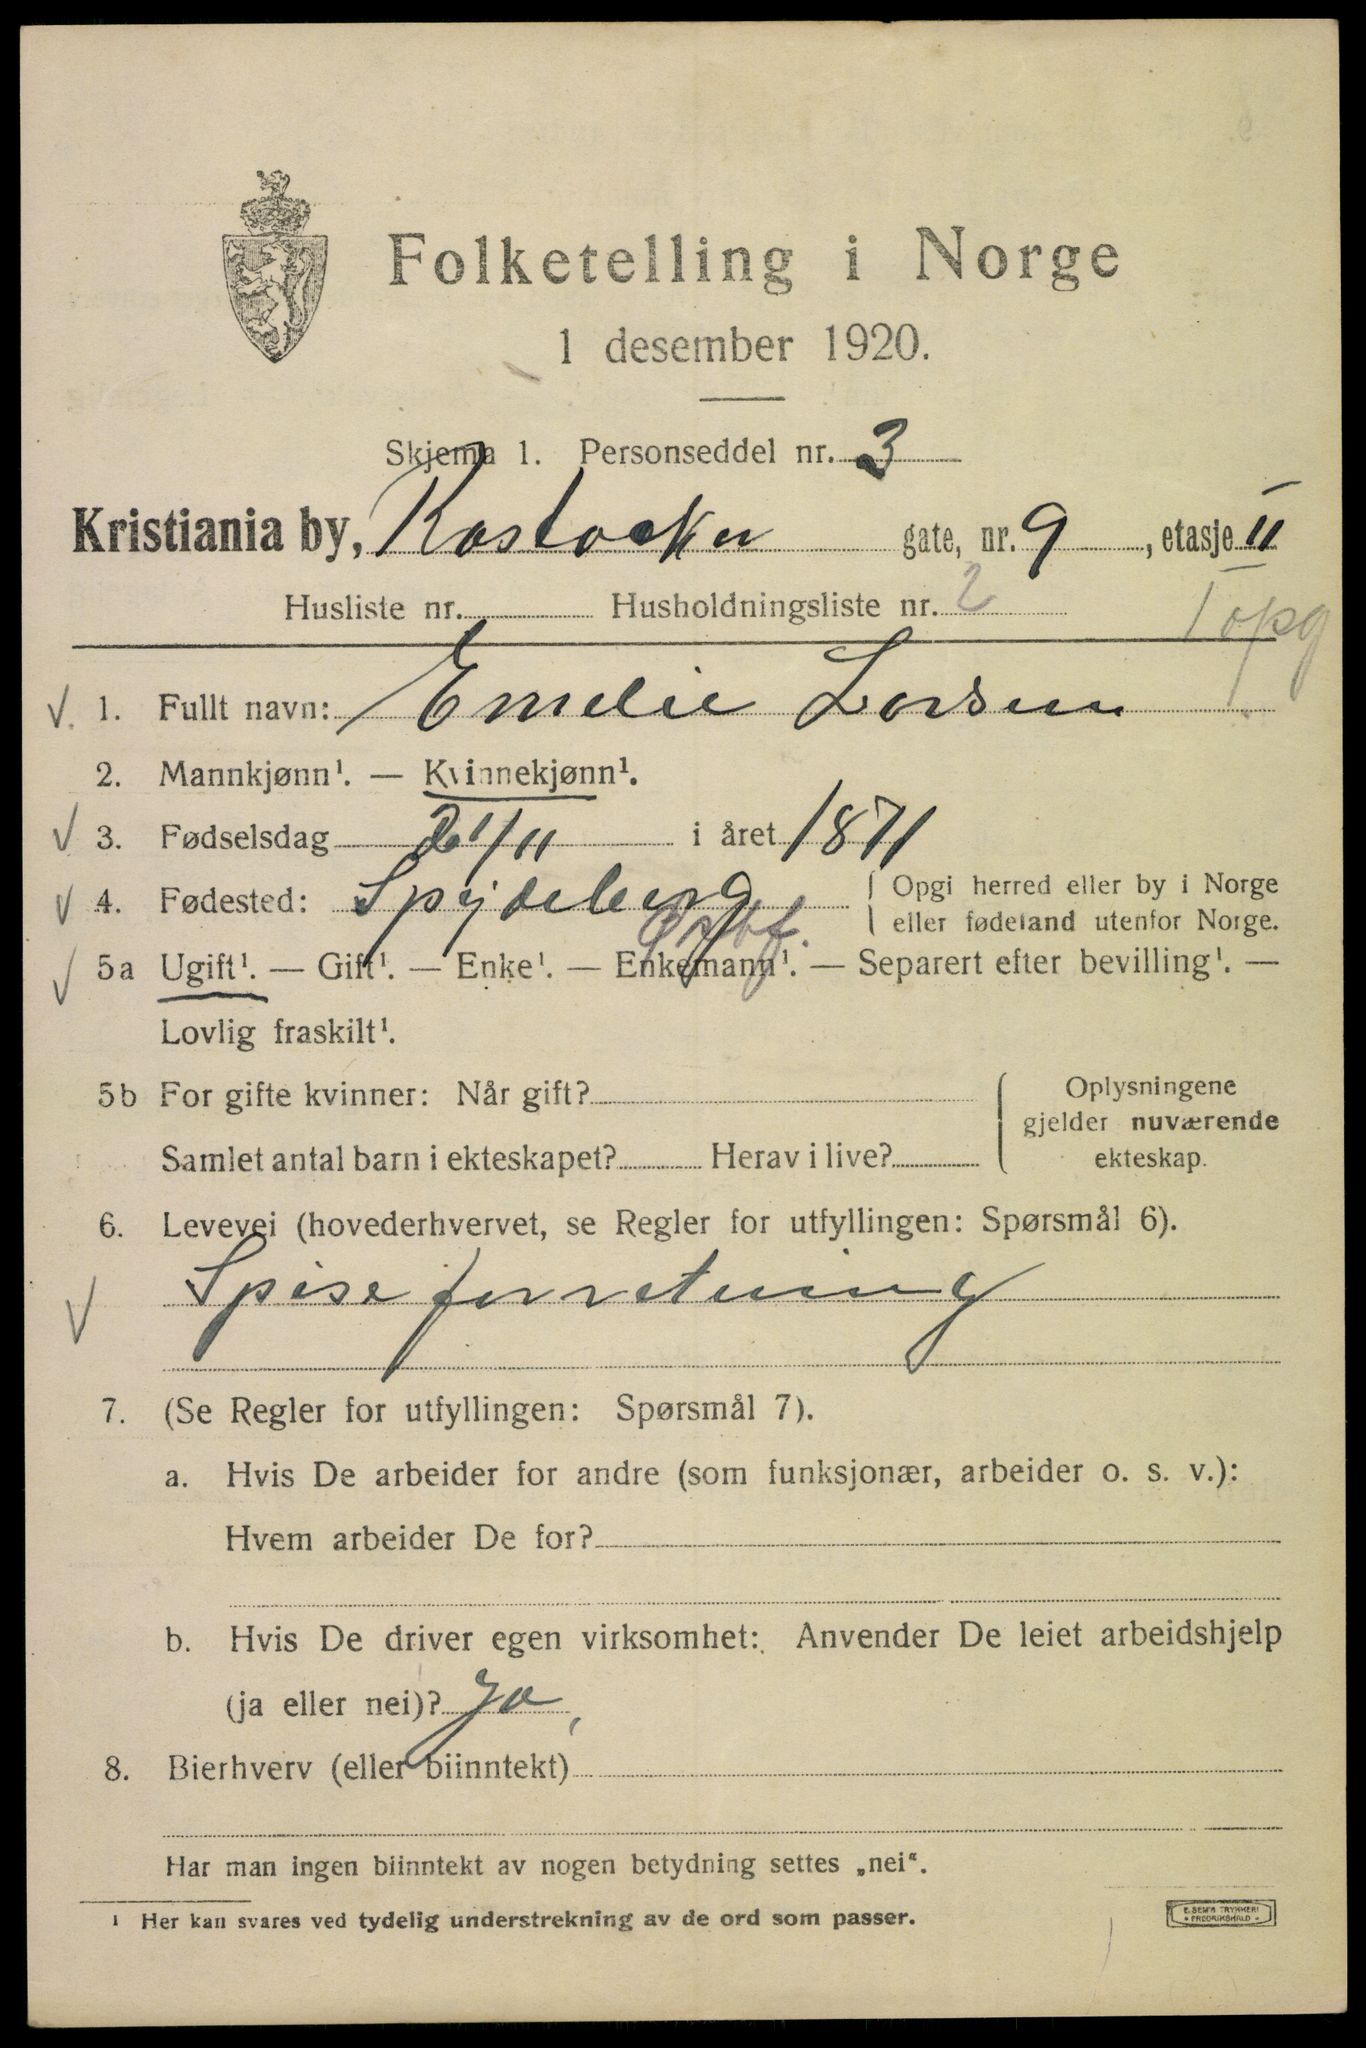 Folketelling i Norge
1 desember 1920.
Skjema 1. Personseddel nr. 3
Kristiania by, Rostocker gate, nr. 9, etasje II
Husliste nr. Husholdningsliste nr. 2
I opg
1. Fullt navn: Emelie Larsen
2. Mannkjønn¹. — Kvinnekjønn¹.
3. Fødselsdag 21/11 i året 1871
4. Fødested: Spydeberg { Opgi herred eller by i Norge
eller fødeland utenfor Norge.
Østf.
5a Ugift¹. — Gift¹. — Enke¹. — Enkemann¹. — Separert efter bevilling¹. —
Lovlig fraskilt¹.
5b For gifte kvinner: Når gift? { Oplysningene
gjelder nuværende
Samlet antal barn i ekteskapet? Herav i live? ekteskap.
6. Levevei (hovederhvervet, se Regler for utfyllingen: Spørsmål 6).
Spiseforretning
7. (Se Regler for utfyllingen: Spørsmål 7).
a. Hvis De arbeider for andre (som funksjonær, arbeider o. s. v.):
Hvem arbeider De for?
b. Hvis De driver egen virksomhet: Anvender De leiet arbeidshjelp
(ja eller nei)? Ja,
8. Bierhverv (eller biinntekt)
Har man ingen biinntekt av nogen betydning settes „nei“.
¹ Her kan svares ved tydelig understrekning av de ord som passer.
E. SEM'S TRYKKERI
• FREDRIKSHALD •